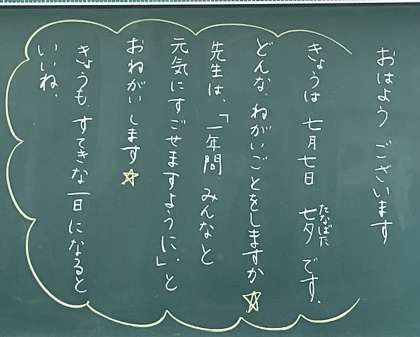 おはよう ございます
きょうは 七月七日 七夕 です.
たなばた
どんな、ねがいごとをしますか
先生は、「一年間 みんなと
元気にすごせますように.」と
おねがい します
きょうも、すてきな一日になると
いいね.